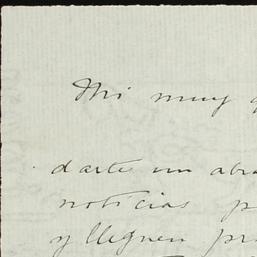 Mi muy
darte un abra
noticias p
y lleguen pr